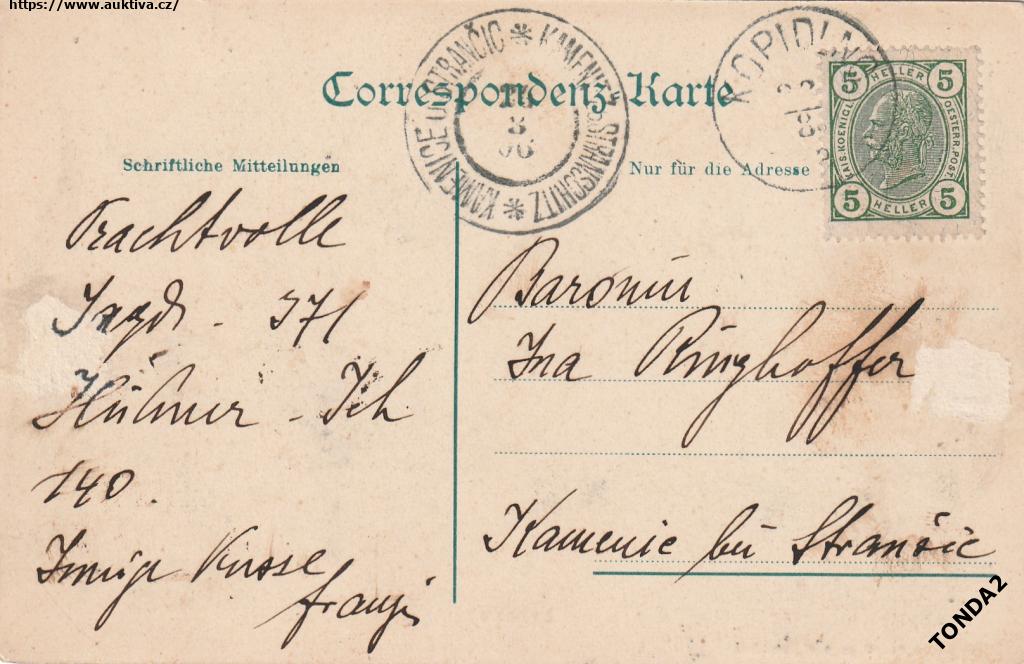 https://www.auktiva.cz/
Correspondenz-Karte
KAMENITZ STRANSCHITZ
KAMENICE U STRANČIC
KOPIDLNO
5 HELLER 5
KAIS.KOENIGL. OESTERR.POST
5 HELLER 5
Schriftliche Mitteilungen
Nur für die Adresse
Prachtvolle
Jagd - 371
Hühner - Ich
140.
Innige Küsse
Baronin
Ina Ringhoffer
Kamenic bei Strančic
TONDA2